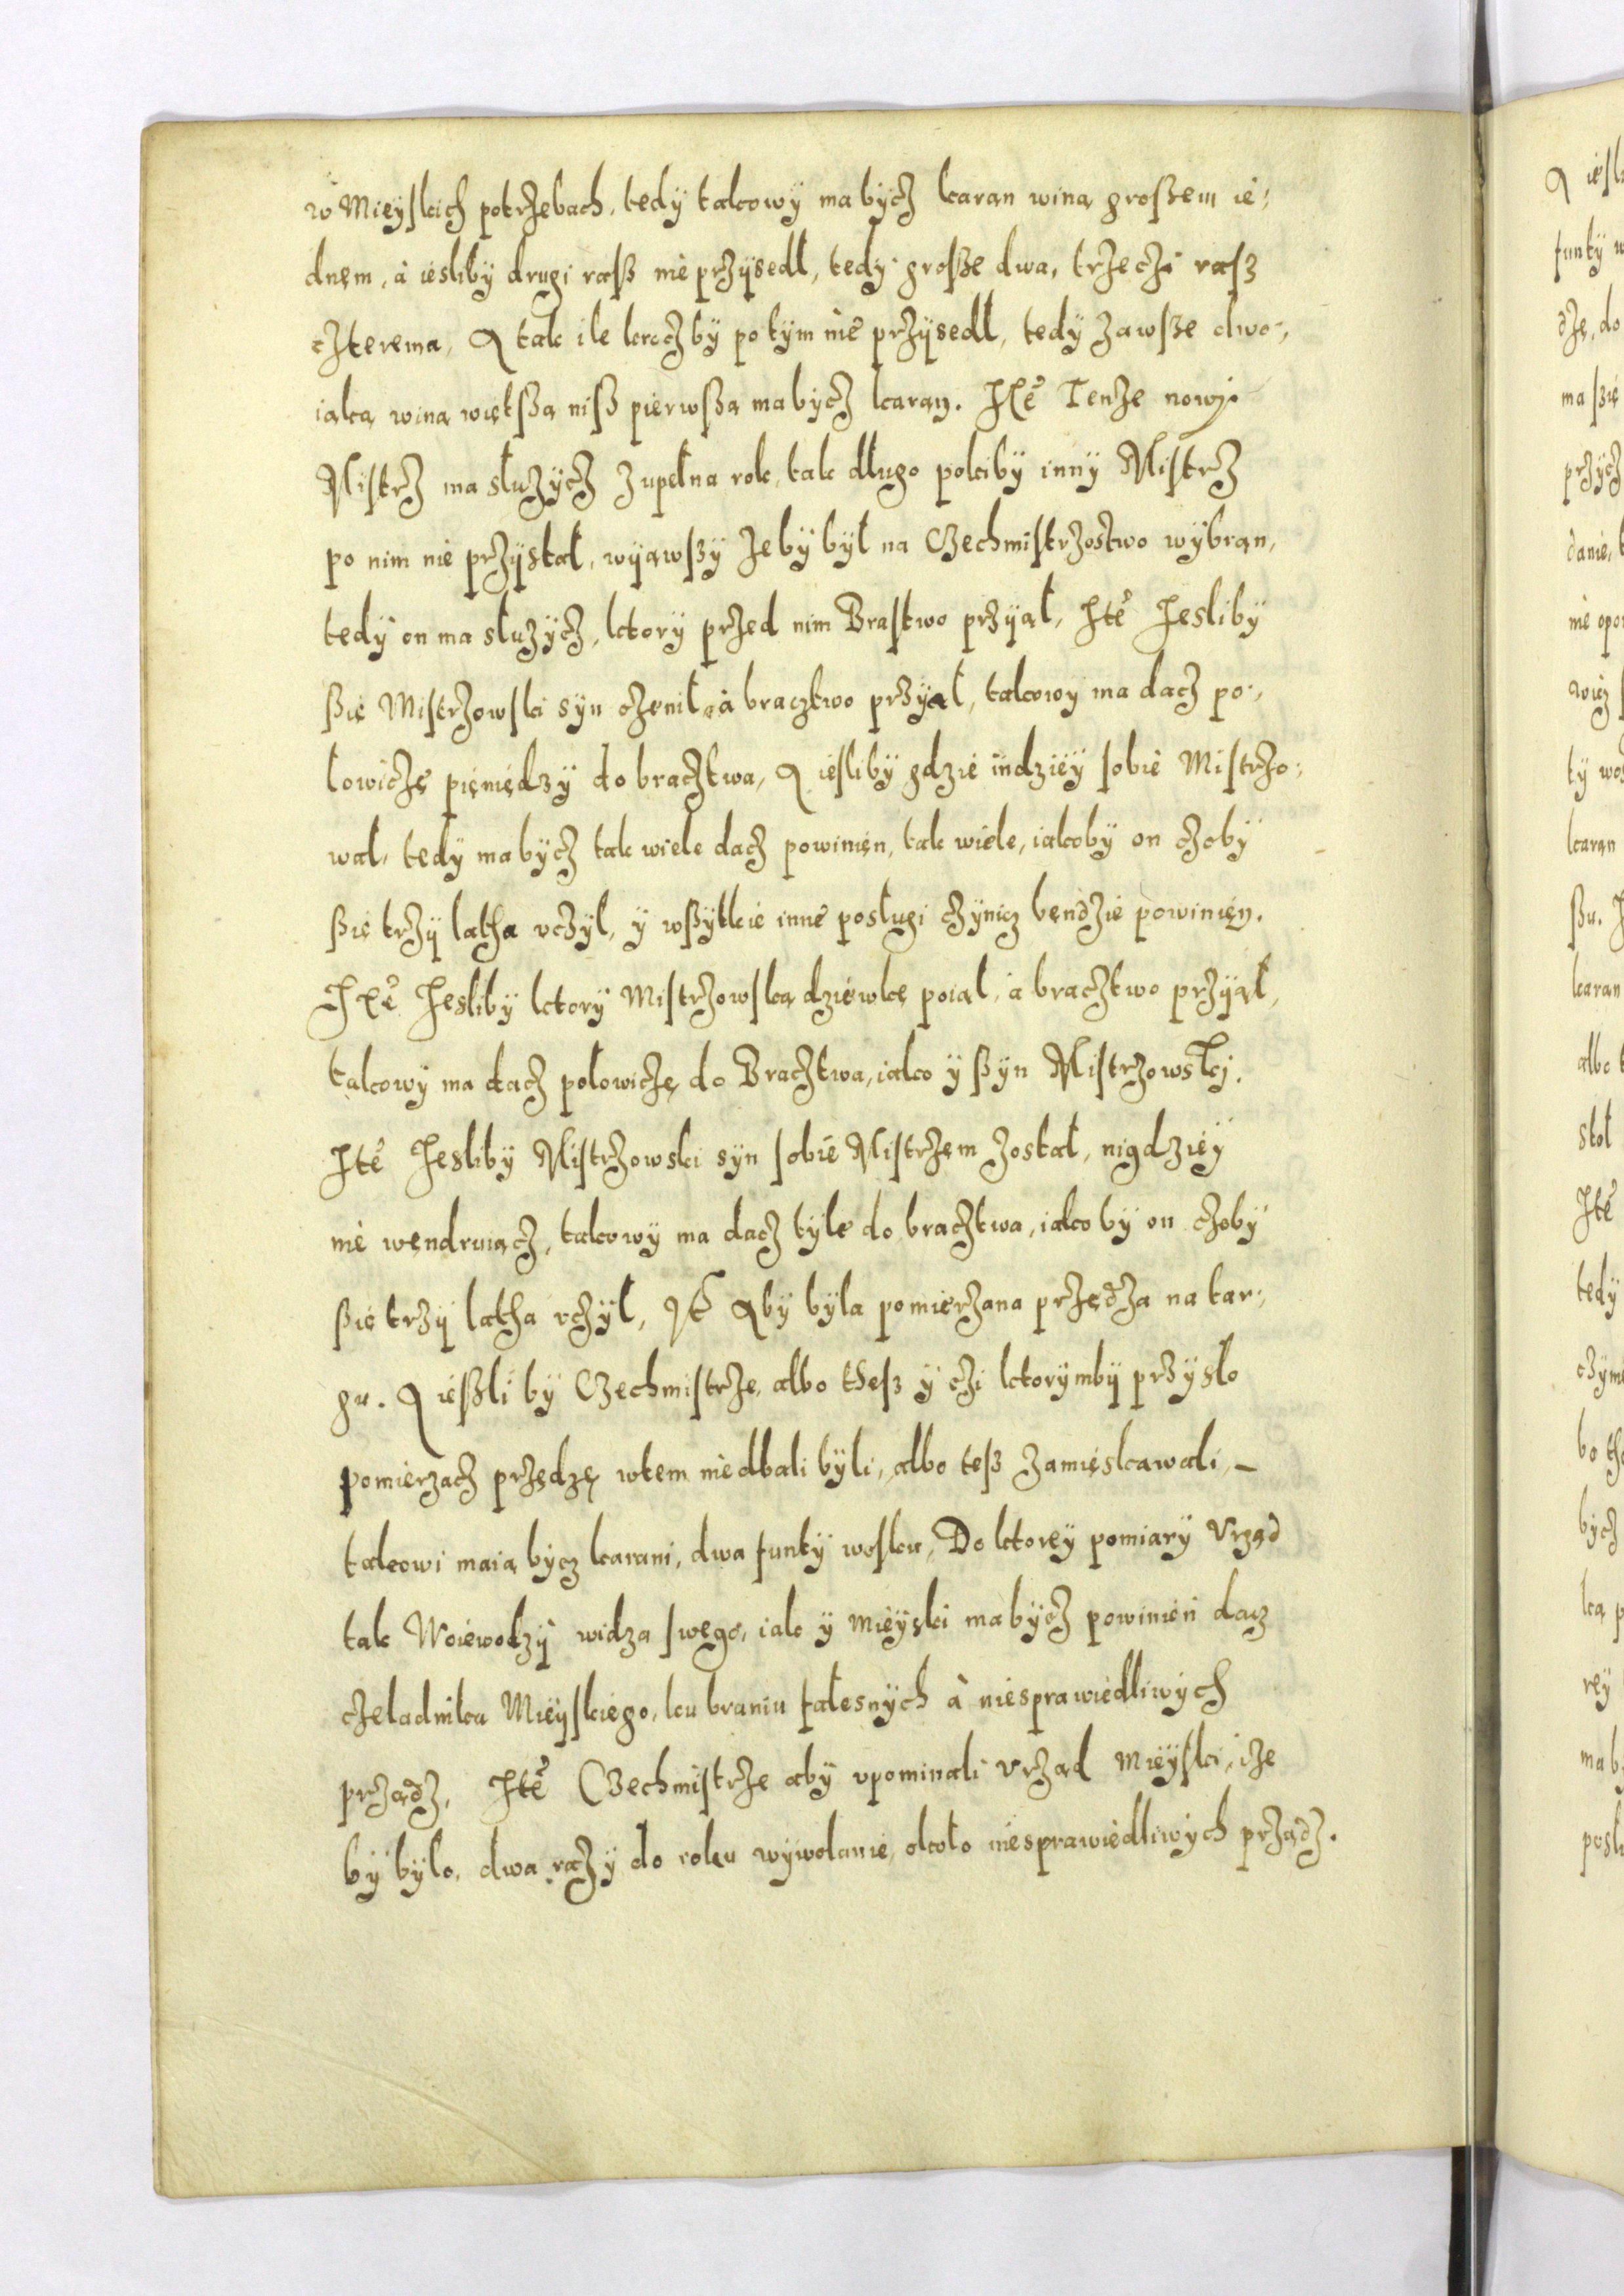 w Mieyskich potrzebach, tedÿ takowÿ ma bÿcz karan winą groszem ie-
dnem, á iesliby drugi rasz nie przÿsedl, tedÿ grosze dwa, trzeczi rasz
czterema, A tak ile kroczbÿ potÿm nie przÿsedl, tedÿ zawsze dwo-
iaką winą wiekszą nisz pierwszą ma bÿcz karan. Ité Tenze nowÿ
Mistrz ma sluzÿcz zupelna rok, tak dlugo pokibÿ innÿ Mistrz
po nim nie przÿstał, wÿiąwszÿ zebÿ bÿł na Czechmistrzostwo wÿbran,
tedÿ on ma sluzÿcz, ktorÿ przed nim Brastwo przÿiął, Ité Jesliby
szię Mistrzowski sÿn ozenił, à bracztwo przÿiął, takowy ma dacz po-
lowicze pieniedzÿ do bracztwa, A iesliby gdzie indzieÿ sobie Mistrzo-
wal, tedÿ ma bÿcz tak wiele dacz powinien, tak wiele, iakobÿ on czobÿ
szię trzÿ latha vczÿl, ÿ wszÿtkie inne poslugi czÿnicz bendzie powinien.
Ité Jeslibÿ ktorÿ Mistrzowską dziewkę poiął, à bracztwo przÿiął,
takowÿ ma dacz polowiczę do Bracztwa, iako ÿ szÿn Mistrzowski.
Ité Jeslibÿ Mistrzowski sÿn sobie Mistrzem zostal, nigdzieÿ
nie wendruiącz, takowÿ ma dacz tÿle do bracztwa, iakobÿ on czobÿ
szię trzÿ latha vczÿl, Ité Abÿ bÿla pomierzana przędza na tar-
gu. A ieszli bÿ Czechmistrze, albo thesz ÿ czi ktorÿmbÿ przÿslo
pomierzacz przędzę wtem niedbali bÿli, albo tesz zamieskawali, –
takowi maią bÿcz karani, dwa funtÿ wosku, Do ktorey pomiarÿ Vrząd
tak Woiewodzÿ widza swego, iak ÿ mieÿski ma bÿcz powinien dacz
czeladnika Mieÿskiego, ku braniu fałesnÿch à niesprawiedliwÿch
prządz, Ité Czechmistrze abÿ vpominali Vrząd Mieÿski, ize
bÿ bÿlo, dwa razÿ do roku wÿwolanie, około niesprawiedliwÿch prządz.